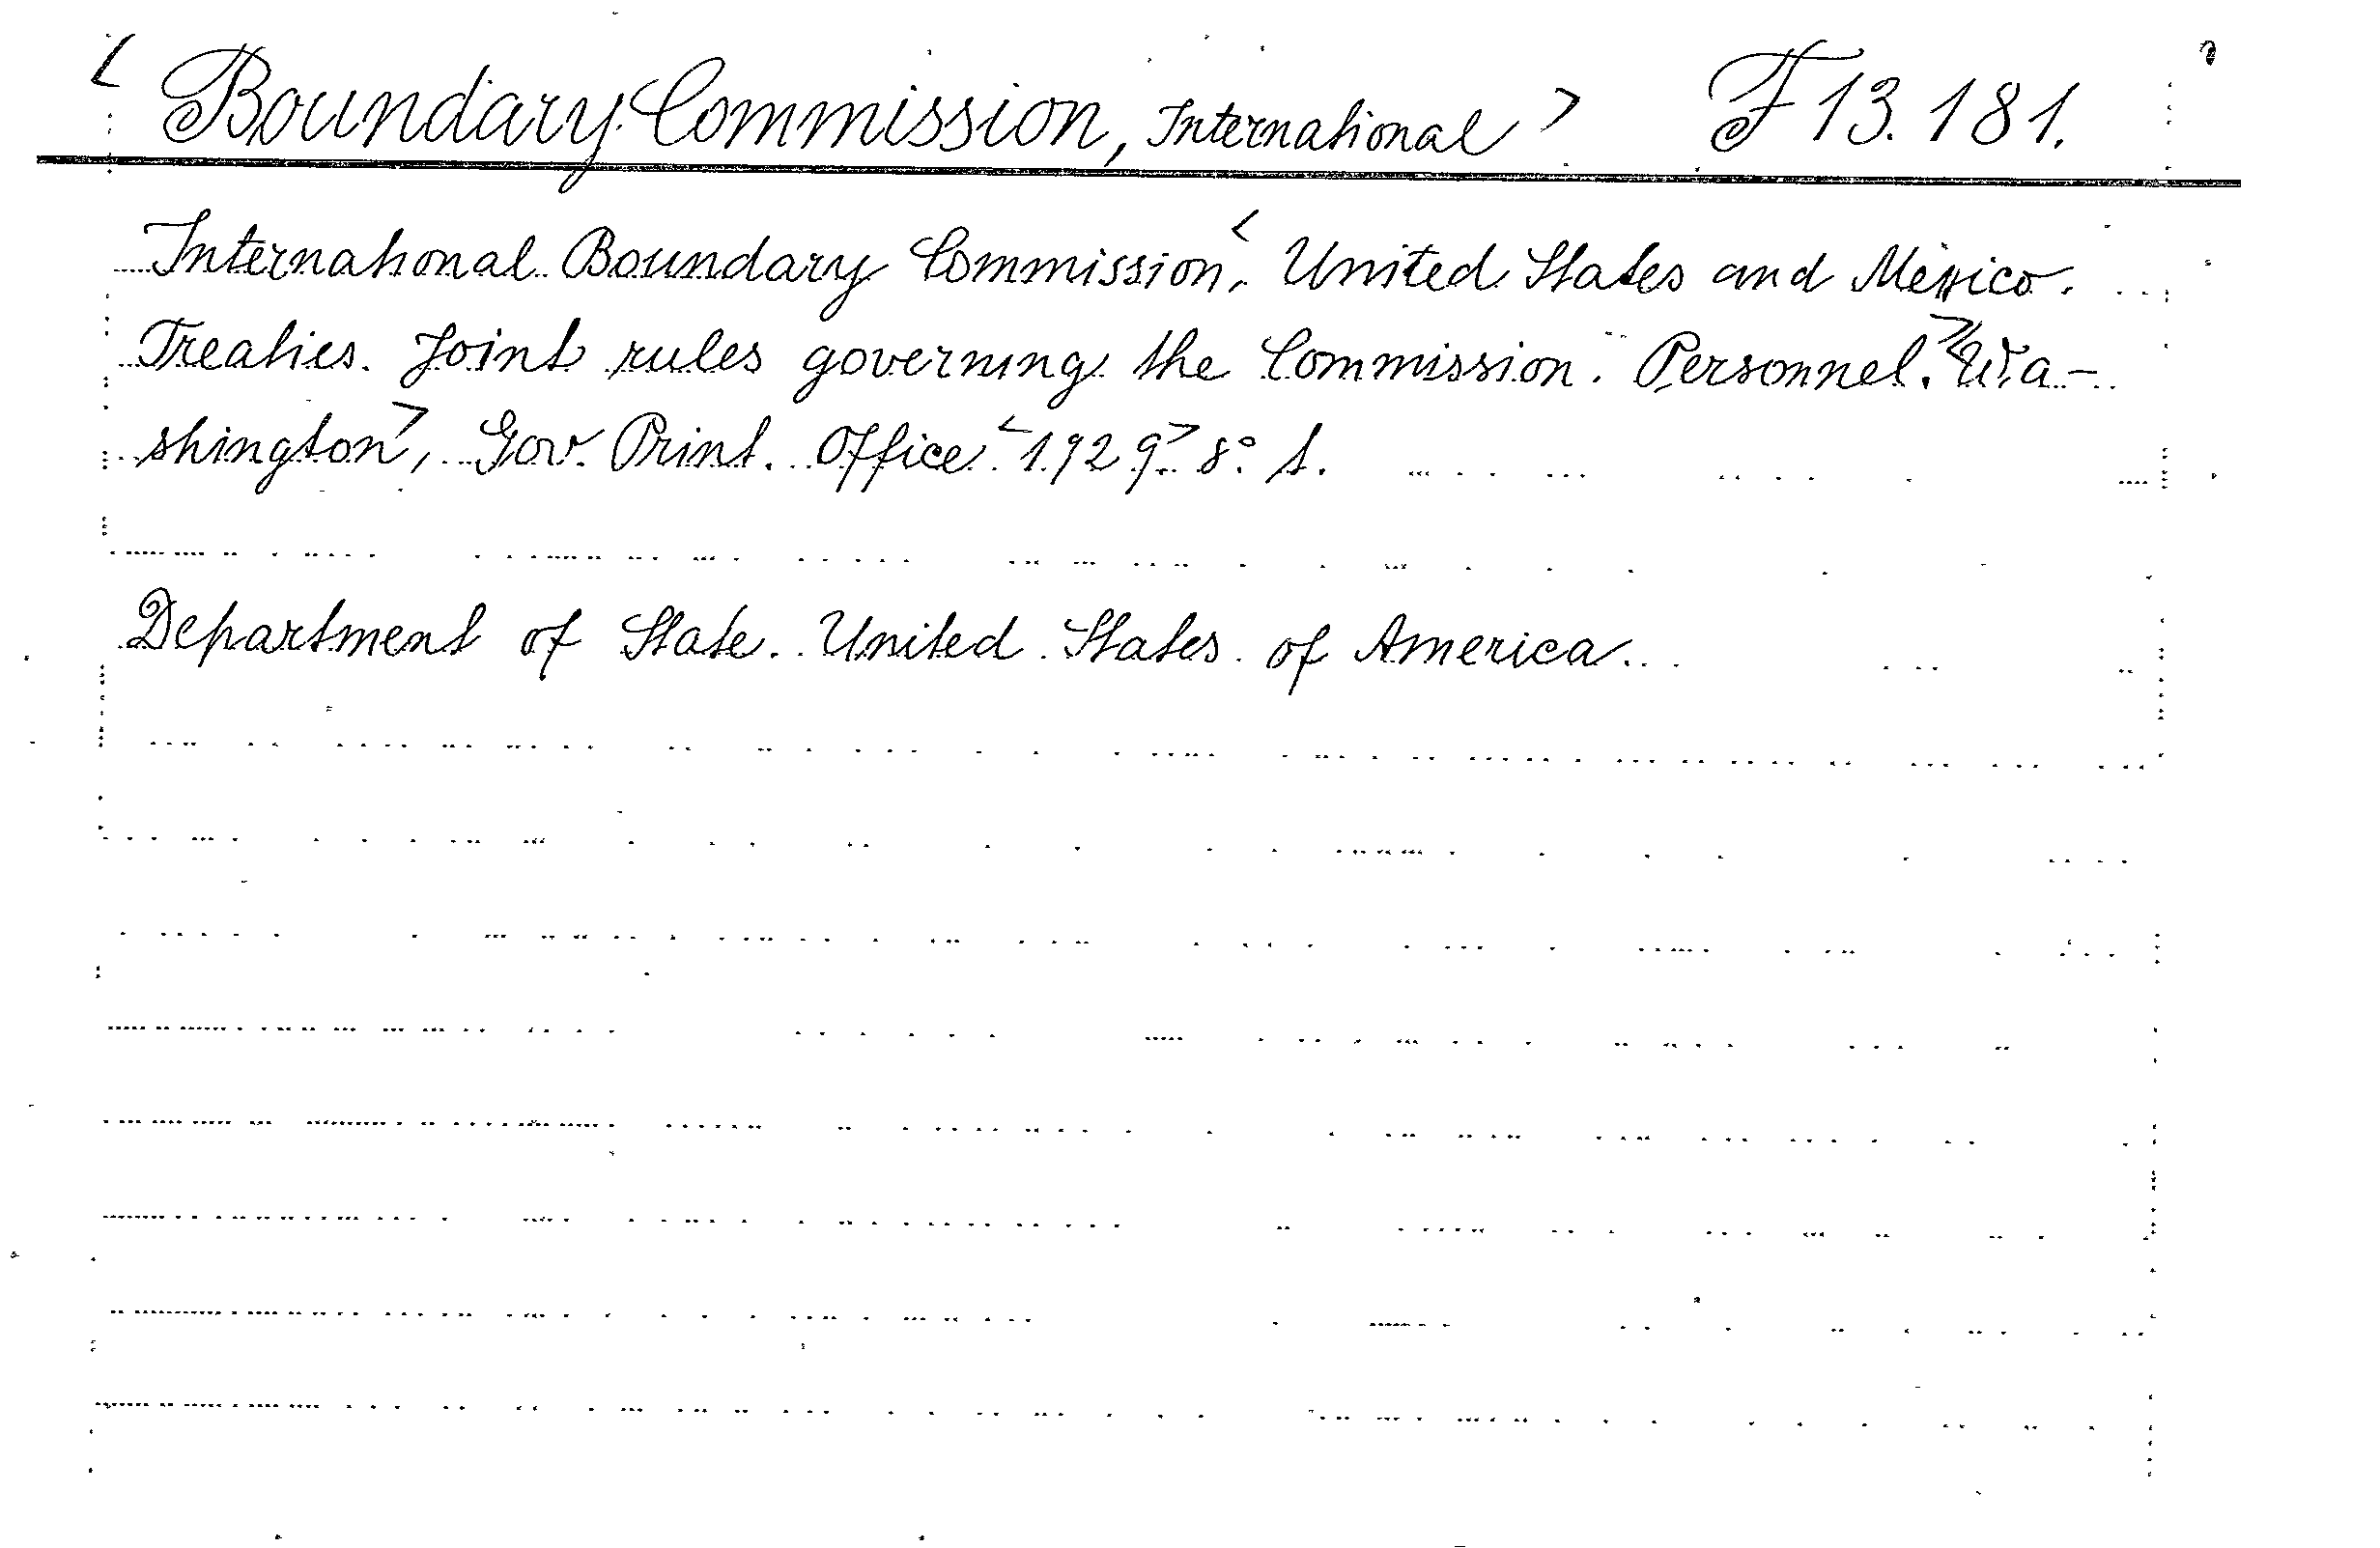 < Boundary Commission, International > F 13. 181.
International Boundary Commission, < United States and Mexico.
Treaties. Joint rules governing the Commission. Personnel. > < Wa-
shington >, Gov. Print. Office < 1929 > 8° 1.
Department of State. United States of America.